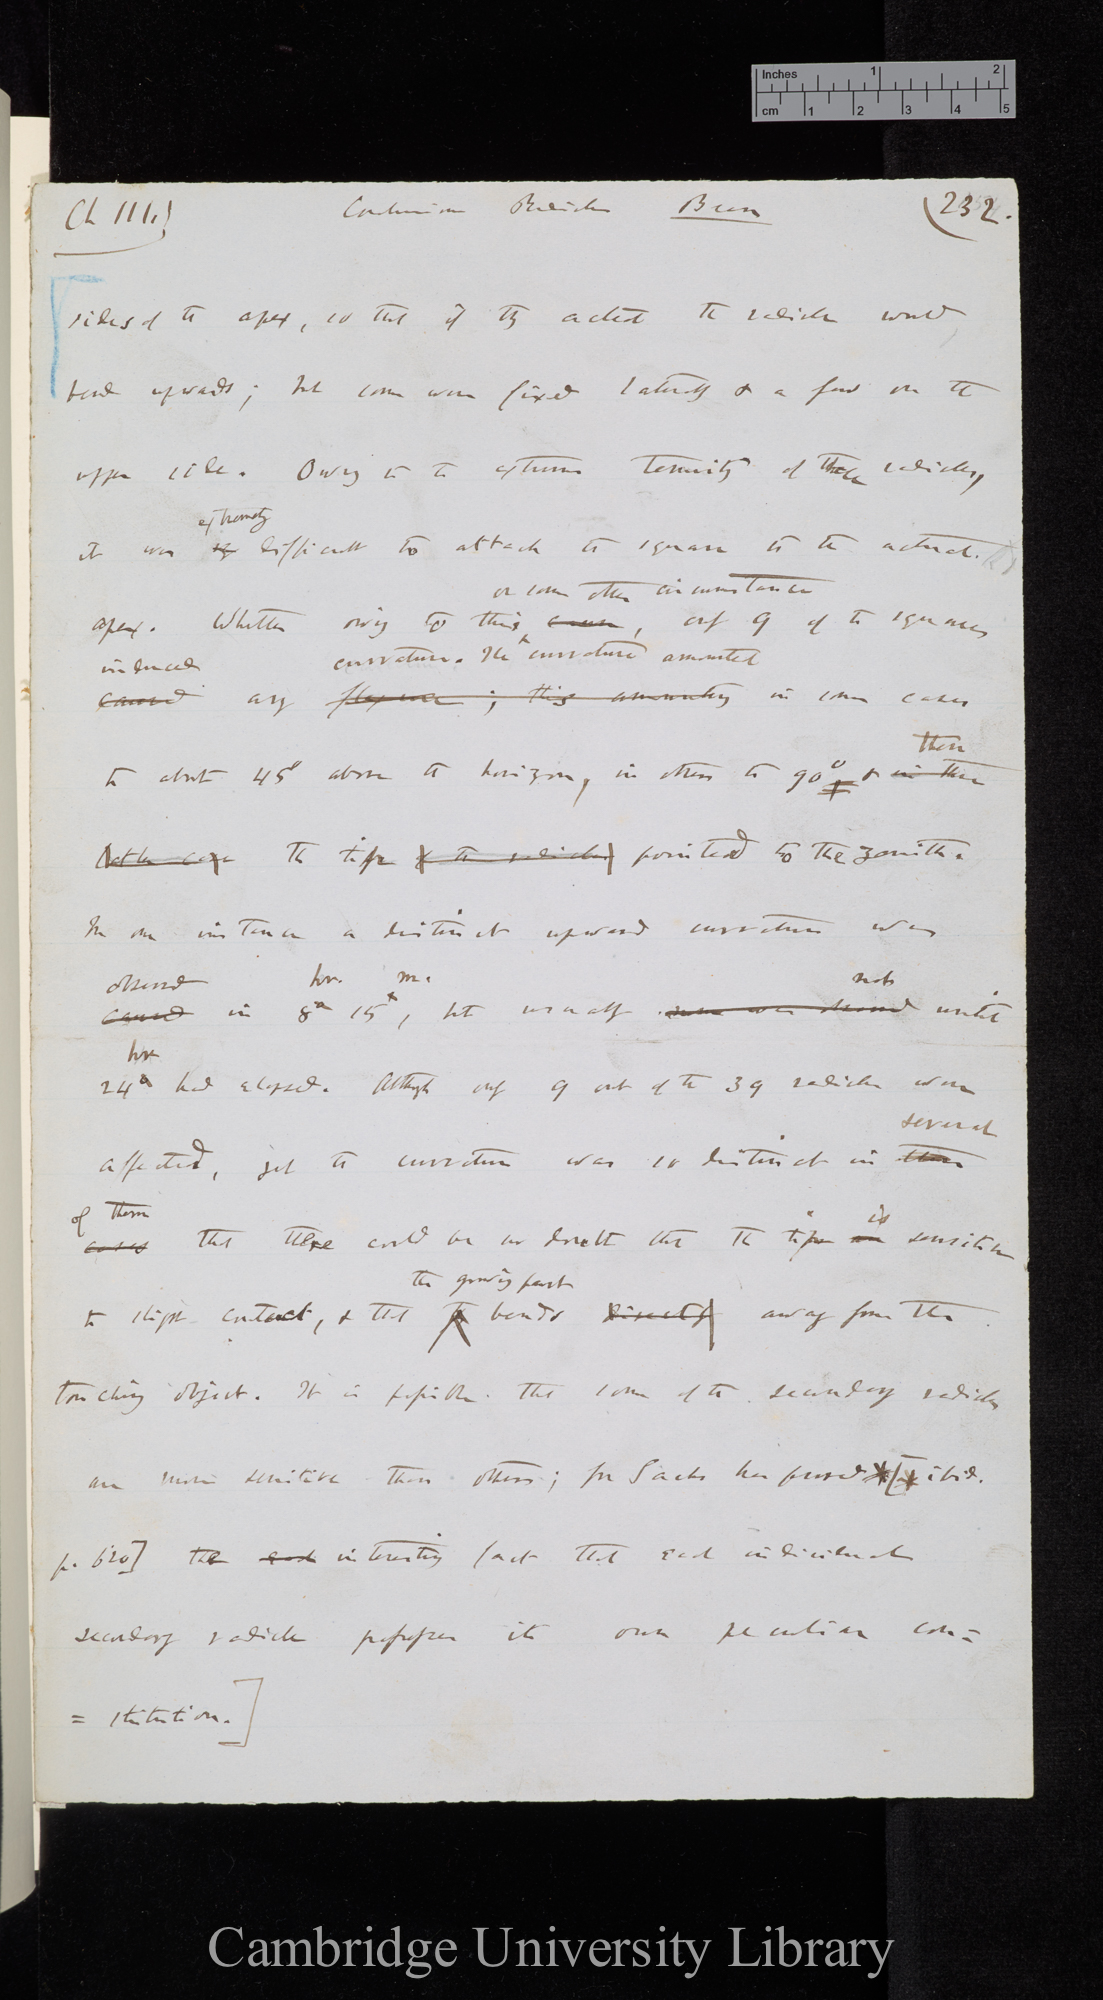 Inches 1 2
cm 1 2 3 4 5
Ch III.)
Radicles Bean
(232.
sides of the apex, so that if they acted the radicle would
bend upwards; but some were fixed laterally & a few on the
upper side. Owing to the extreme tenuity of these radicles,
extremely
it was difficult to attach the square to the actual
or some other circumstance
apex. Whether owing to this cause, only 9 of the squares
induced curvature. The curvature amounted
caused any flexure; this amounting in some cases
there
to about 45° above the horizon, in others to 90°, & in these
latter case the tips of the radicles pointed to the zenith.
In one instance a distinct upward curvature was
observed hor. m. not
caused in 8h 15m, but usually none was observed until
hor
24h had elapsed. Although only 9 out of the 39 radicles were
several
affected, yet the curvature was so distinct in these
of them is
cases that there could be no doubt that the tip sensitive
the growing part
to slight contact, & that bends directly away from the
touching object. It is possible that some of the secondary radicles
are more sensitive than others; for Sachs has proved *[* ibid.
p. 620] the interesting fact that each individual
secondary radicle possesses its own peculiar con=
=stitution.]
Cambridge University Library